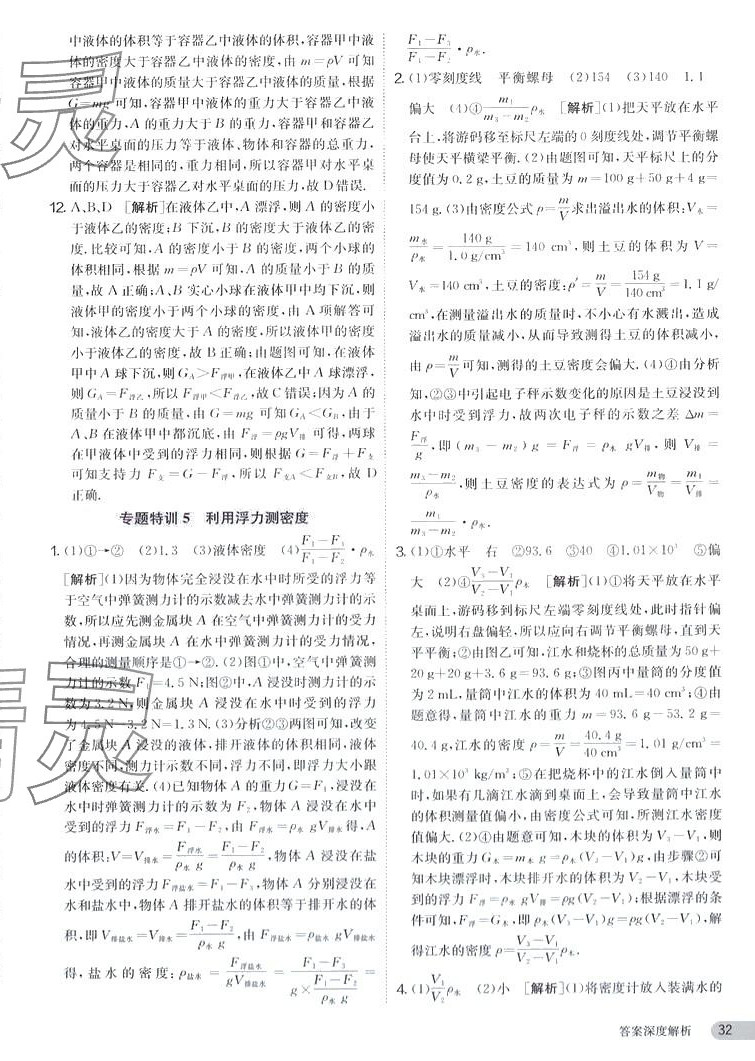 中液体的体积等于容器乙中液体的体积,容器甲中液
体的密度大于容器乙中液体的密度,由 m=ρV 可知
容器甲中液体的质量大于容器乙中液体的质量,根据
G=mg 可知,容器甲中液体的重力大于容器乙中液
体的重力,A 的重力大于 B 的重力,容器甲和容器乙
对水平桌面的压力等于液体、物体和容器的总重力,
两个容器是相同的,重力相同,所以容器甲对水平桌
面的压力大于容器乙对水平桌面的压力,故 D 错误.
12. A、B、D [解析]在液体乙中,A 漂浮,则 A 的密度小
于液体乙的密度;B 下沉,B 的密度大于液体乙的密
度.比较可知,A 的密度小于 B 的密度,两个小球的
体积相同,根据 m=ρV 可知,A 的质量小于 B 的质
量,故 A 正确;A、B 实心小球在液体甲中均下沉,则
液体甲的密度小于两个小球的密度,由 A 项解答可
知,液体乙的密度大于 A 的密度,所以液体甲的密度
小于液体乙的密度,故 B 正确;由题图可知,在液体
甲中 A 球下沉,则 G_A>F_浮甲,在液体乙中 A 球漂浮,
则 G_A=F_浮乙,所以 F_浮甲<F_浮乙,故 C 错误;因为 A 的
质量小于 B 的质量,由 G=mg 可知 G_A<G_B,由于
A、B 在液体甲中都沉底,由 F_浮=ρgV_排 可得,两球
在甲液体中受到的浮力相同,则根据 G=F_浮+F_支
可知支持力 F_支=G-F_浮,所以 F_支A<F_支B,故 D
正确.
专题特训 5 利用浮力测密度
1. (1)①→② (2)1.3 (3)液体密度 (4)(F₁-F₃)/(F₁-F₂)·ρ_水
[解析](1)因为物体完全浸没在水中时所受的浮力等
于空气中弹簧测力计的示数减去水中弹簧测力计的示
数,所以应先测金属块 A 在空气中弹簧测力计的受力
情况,再测金属块 A 在水中弹簧测力计的受力情况,
合理的测量顺序是①→②.(2)图①中,空气中弹簧测
力计的示数 F₁=4.5 N;图②中,A 浸没时测力计的示
数为 3.2 N,则金属块 A 浸没在水中时受到的浮力
为 4.5 N-3.2 N=1.3 N.(3)分析②③两图可知,改变
了金属块 A 浸没的液体,排开液体的体积相同,液体
密度不同,测力计示数不同,浮力不同,即浮力大小跟
液体密度有关.(4)已知物体 A 的重力 G=F₁,浸没在
水中时弹簧测力计的示数为 F₂,物体 A 浸没在水中
受到的浮力 F_浮水=F₁-F₂,由 F_浮水=ρ_水 gV_排水 得,A
的体积:V=V_排水=F_浮水/(ρ_水 g)=(F₁-F₂)/(ρ_水 g),物体 A 浸没在盐
水中受到的浮力 F_浮盐水=F₁-F₃,物体 A 分别浸没在
水和盐水中,物体 A 排开盐水的体积等于排开水的体
积,即 V_排盐水=V_排水=(F₁-F₂)/(ρ_水 g),由 F_浮盐水=ρ_盐水 gV_排盐水
得,盐水的密度:ρ_盐水=F_浮盐水/(gV_排盐水)=(F₁-F₃)/(g×(F₁-F₂)/(ρ_水 g))=
(F₁-F₃)/(F₁-F₂)·ρ_水.
2. (1)零刻度线 平衡螺母 (2)154 (3)140 1.1
偏大 (4)④m₁/(m₃-m₂)ρ_水 [解析](1)把天平放在水平
台上,将游码移至标尺左端的 0 刻度线处,调节平衡螺
母使天平横梁平衡.(2)由题图可知,天平标尺上的分
度值为 0.2 g,土豆的质量为 m=100 g+50 g+4 g=
154 g.(3)由密度公式 ρ=m/V求出溢出水的体积:V_水=
m_水/ρ_水=140 g/1.0 g/cm³=140 cm³,则土豆的体积为 V=
V_水=140 cm³,土豆的密度:ρ′=m/V=154 g/140 cm³=1.1 g/
cm³,在测量溢出水的质量时,不小心有水溅出,造成
溢出水的质量减小,从而导致测得土豆的体积减小,
由 ρ=m/V可知,测得的土豆密度会偏大.(4)④由分析
知,②③中引起电子秤示数变化的原因是土豆浸没到
水中时受到浮力,故两次电子秤的示数之差 Δm=
F_浮/g,即(m₃-m₂)g=F_浮=ρ_水 gV_排,则 V_排=
(m₃-m₂)/ρ_水,土豆密度的表达式为 ρ=m_物/V_物=m₁/V_排=
m₁/(m₃-m₂)·ρ_水.
3. (1)①水平 右 ②93.6 ③40 ④1.01×10³ ⑤偏
大 (2)④(V₃-V₁)/(V₂-V₁)ρ_水 [解析](1)①将天平放在水平
桌面上,游码移到标尺左端零刻度线处,此时指针偏
左,说明右盘偏轻,所以应向右调节平衡螺母,直到天
平平衡;②由图乙可知,江水和烧杯的总质量为 50 g+
20 g+20 g+3.6 g=93.6 g;③图丙中量筒的分度值
为 2 mL,量筒中江水的体积为 40 mL=40 cm³;④由
题意得,量筒中江水的质量 m=93.6 g-53.2 g=
40.4 g,江水的密度 ρ=m/V=40.4 g/40 cm³=1.01 g/cm³=
1.01×10³ kg/m³;⑤在把烧杯中的江水倒入量筒中
时,如果有几滴江水滴到桌面上,会导致量筒中江水
的体积测量值偏小,由密度公式可知,所测江水密度
值偏大.(2)④由题意可知,木块的体积为 V₃-V₁,则
木块的重力 G_木=m_木 g=ρ_木(V₃-V₁)g,由步骤②可
知木块漂浮时,木块排开江水的体积为 V₂-V₁,木块受
到的浮力 F_浮=ρ gV_排=ρg(V₂-V₁);根据漂浮的条
件可知,F_浮=G_木,即 ρ_木(V₃-V₁)g=ρg(V₂-V₁),解
得江水的密度 ρ=(V₃-V₁)/(V₂-V₁)ρ_木.
4. (1)V₁/V₂ρ_水 (2)小 [解析](1)将密度计放入装满水的
答案深度解析 32